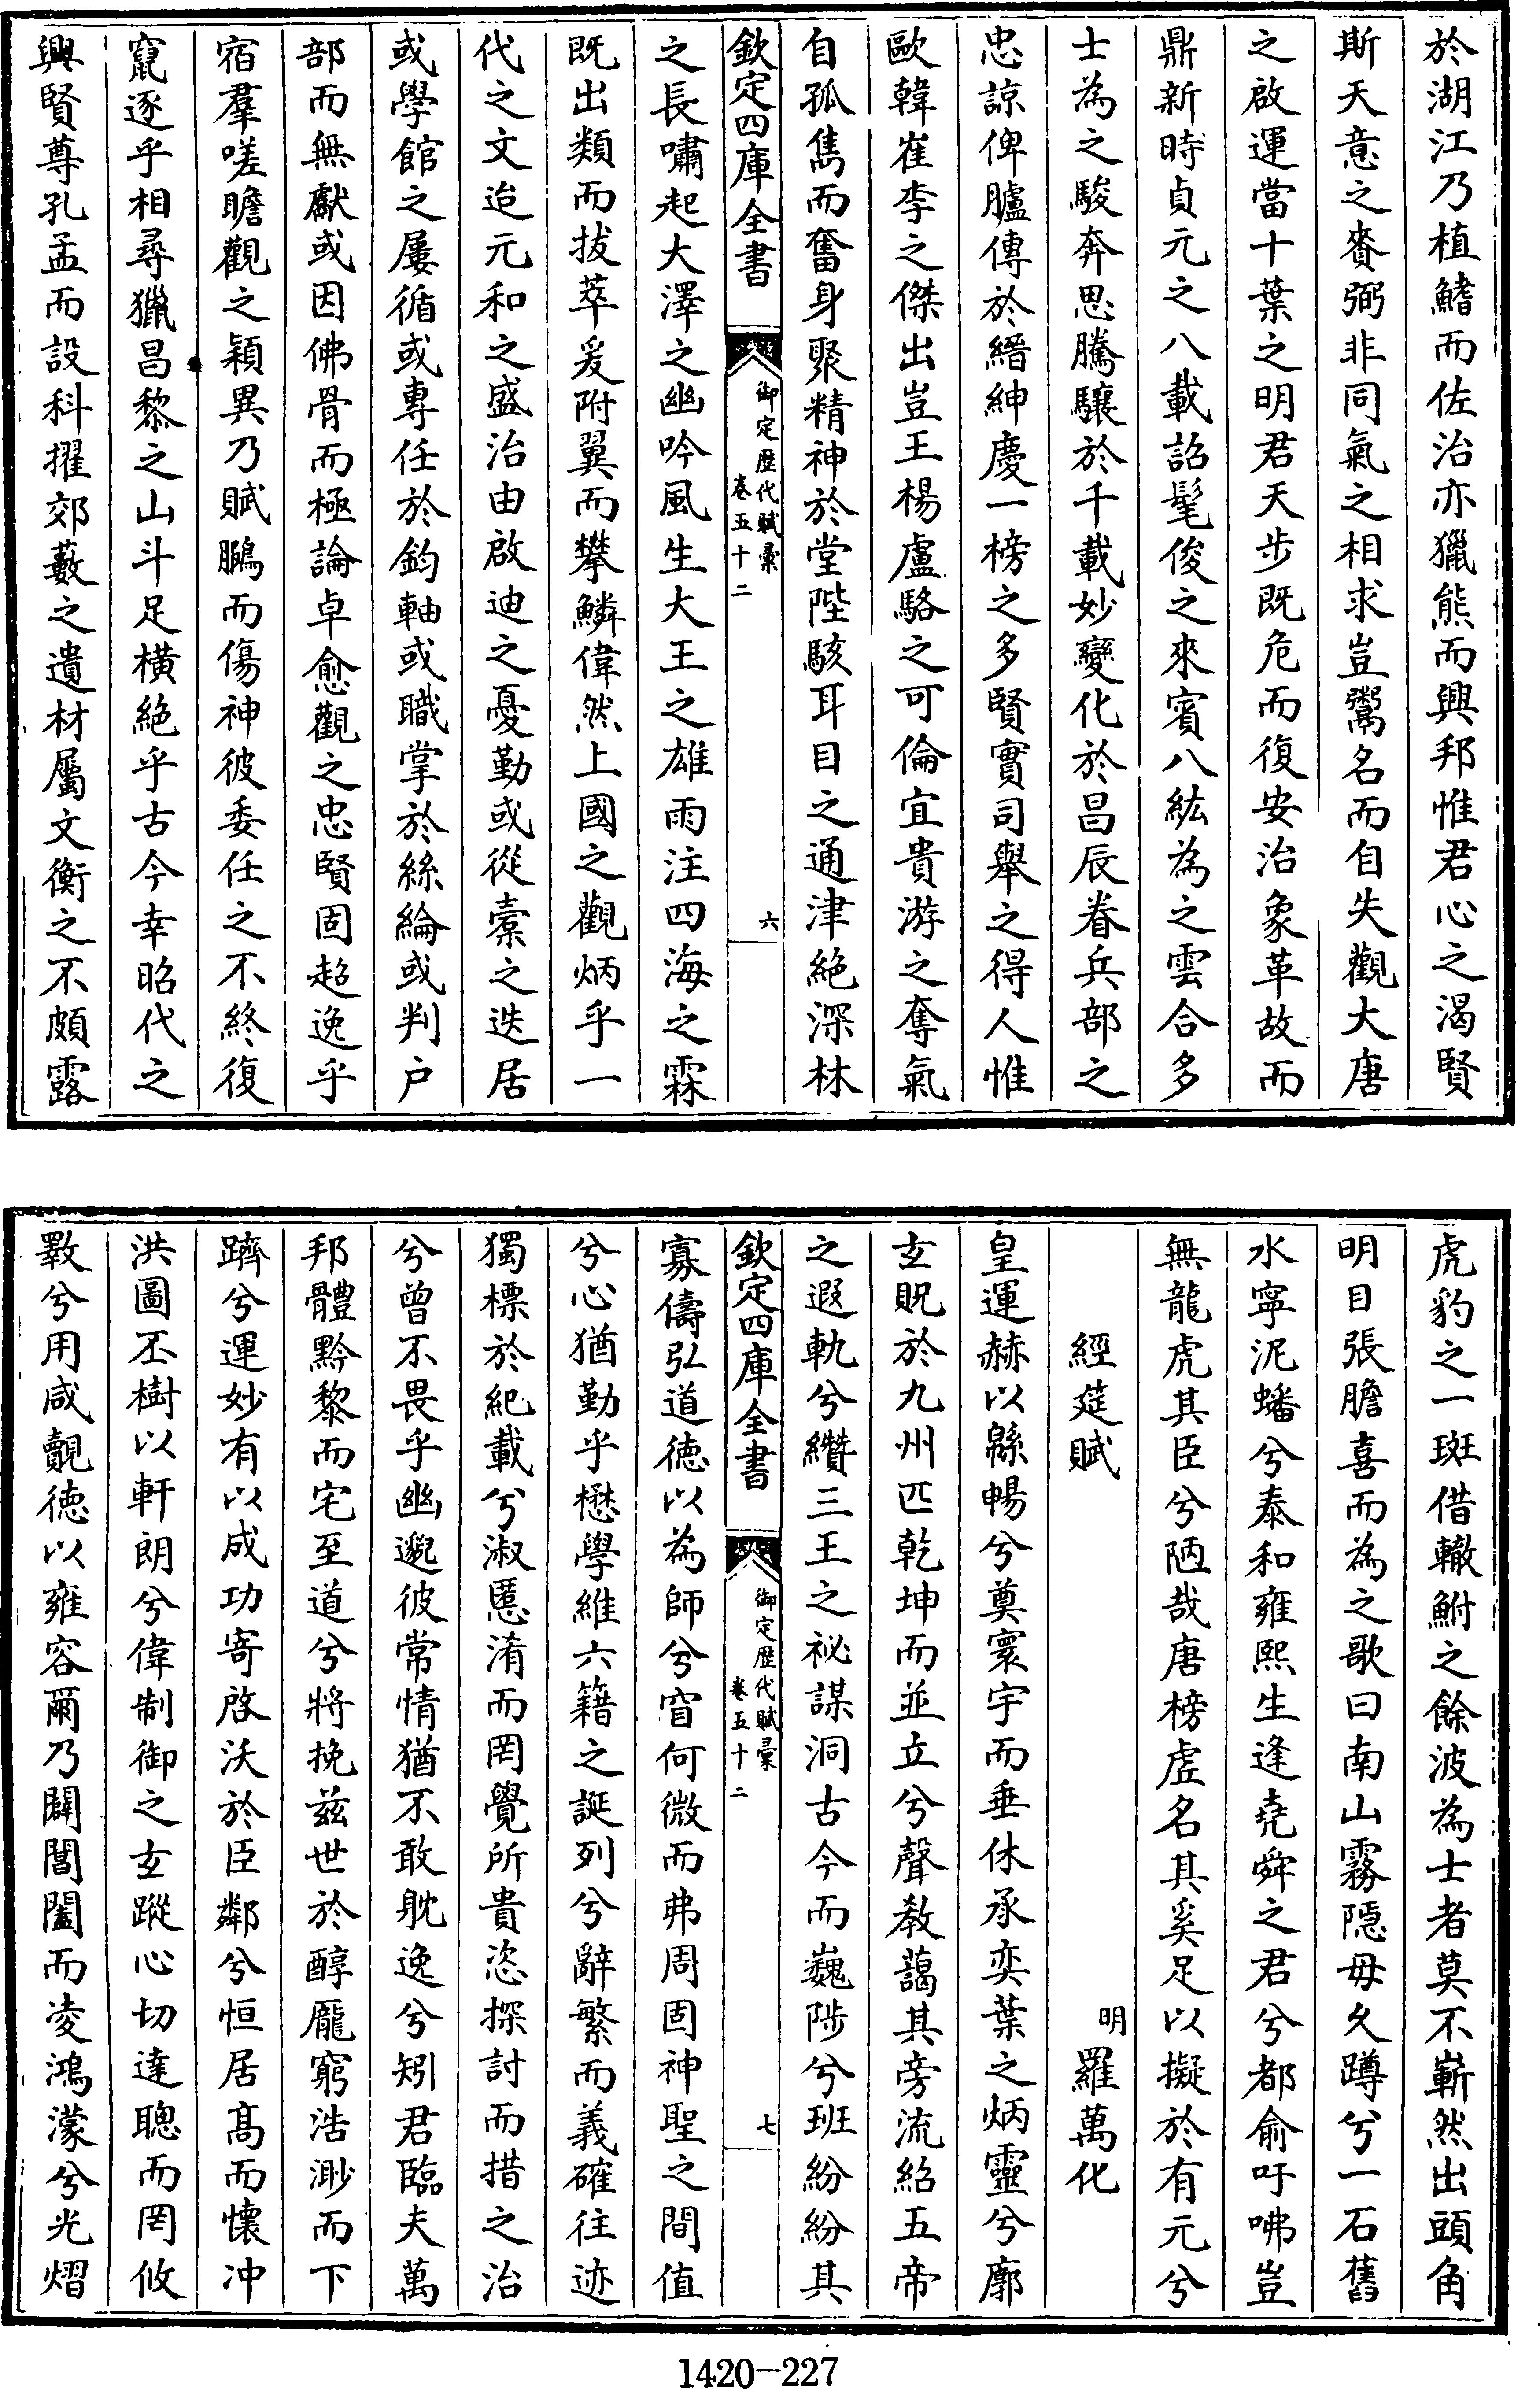 於湖江乃植鰭而佐治亦獵熊而興邦惟君心之渴賢
斯天意之賚弼非同氣之相求豈鬻名而自失觀大唐
之啟運當十葉之明君天步既危而復安治象革故而
鼎新時貞元之八載詔髦俊之來賓八紘為之雲合多
士為之駿奔思騰驤於千載妙變化於昌辰眷兵部之
忠諒俾臚傳於縉紳慶一榜之多賢實司舉之得人惟
歐韓崔李之傑出豈王楊盧駱之可倫宜貴游之奪氣
自孤雋而奮身聚精神於堂陛駭耳目之通津絶深林
欽定四庫全書
御定歴代賦彙
卷五十二
六
之長嘯起大澤之幽吟風生大王之雄雨注四海之霖
既出類而拔萃爰附翼而攀鱗偉然上國之觀炳乎一
代之文迨元和之盛治由啟迪之憂勤或從橐之迭居
或學館之屢循或專任於鈞軸或職掌於絲綸或判户
部而無獻或因佛骨而極論卓愈觀之忠賢固超逸乎
宿羣嗟瞻觀之穎異乃賦鵬而傷神彼委任之不終復
竄逐乎相尋獵昌黎之山斗足橫絶乎古今幸昭代之
興賢尊孔孟而設科擢郊藪之遺材屬文衡之不頗露
虎豹之一斑借轍鮒之餘波為士者莫不嶄然出頭角
明目張膽喜而為之歌曰南山霧隱毋久蹲兮一石舊
水寧泥蟠兮泰和雍熙生逢堯舜之君兮都俞吁咈豈
無龍虎其臣兮陋哉唐榜虛名其奚足以擬於有元兮
經筵賦
明
羅萬化
皇運赫以緜暢兮奠寰宇而垂休承奕葉之炳靈兮廓
玄貺於九州匹乾坤而並立兮聲教藹其旁流紹五帝
之遐軌兮纘三王之祕謀洞古今而巍陟兮班紛紛其
欽定四庫全書
御定歴代賦彙
卷五十二
七
寡儔弘道徳以為師兮窅何微而弗周固神聖之間值
兮心猶勤乎懋學維六籍之誕列兮辭繁而義確往迹
獨標於紀載兮淑慝淆而罔覺所貴恣探討而措之治
兮曾不畏乎幽邈彼常情猶不敢躭逸兮矧君臨夫萬
邦體黔黎而宅至道兮將挽兹世於醇厖窮浩渺而下
躋兮運妙有以成功寄啓沃於臣鄰兮恒居髙而懷冲
洪圖丕樹以軒朗兮偉制御之玄蹤心切達聰而罔攸
斁兮用咸覿徳以雍容爾乃闢閶闔而凌鴻濛兮光熠
1420-227